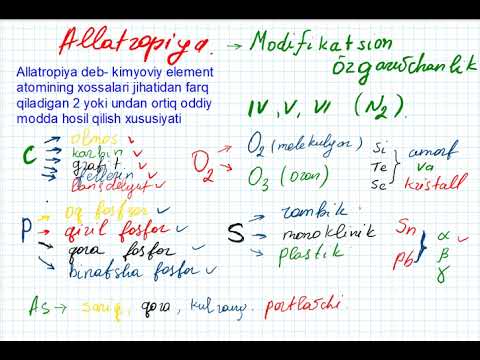 Allatropiya. → Modifikatsion
özgaruvchanlik
Allatropiya deb- kimyoviy element
atomining xossalari jihatidan farq
qiladigan 2 yoki undan ortiq oddiy
modda hosil qilish xususiyati
IV, V, VI (N₂).
C
olmos
karbin
grafit
fulleren
O₂
O₂ (molekulyar)
O₃ (ozon)
Si
Te
Se
amorf
va
kristall
P
oq fosfor
qizil fosfor
qora fosfor
binafsha fosfor
S
rombik
monoklinik
plastik
Sn
Pb
α
β
γ
As → sariq, qora, kulrang. portlovchi.